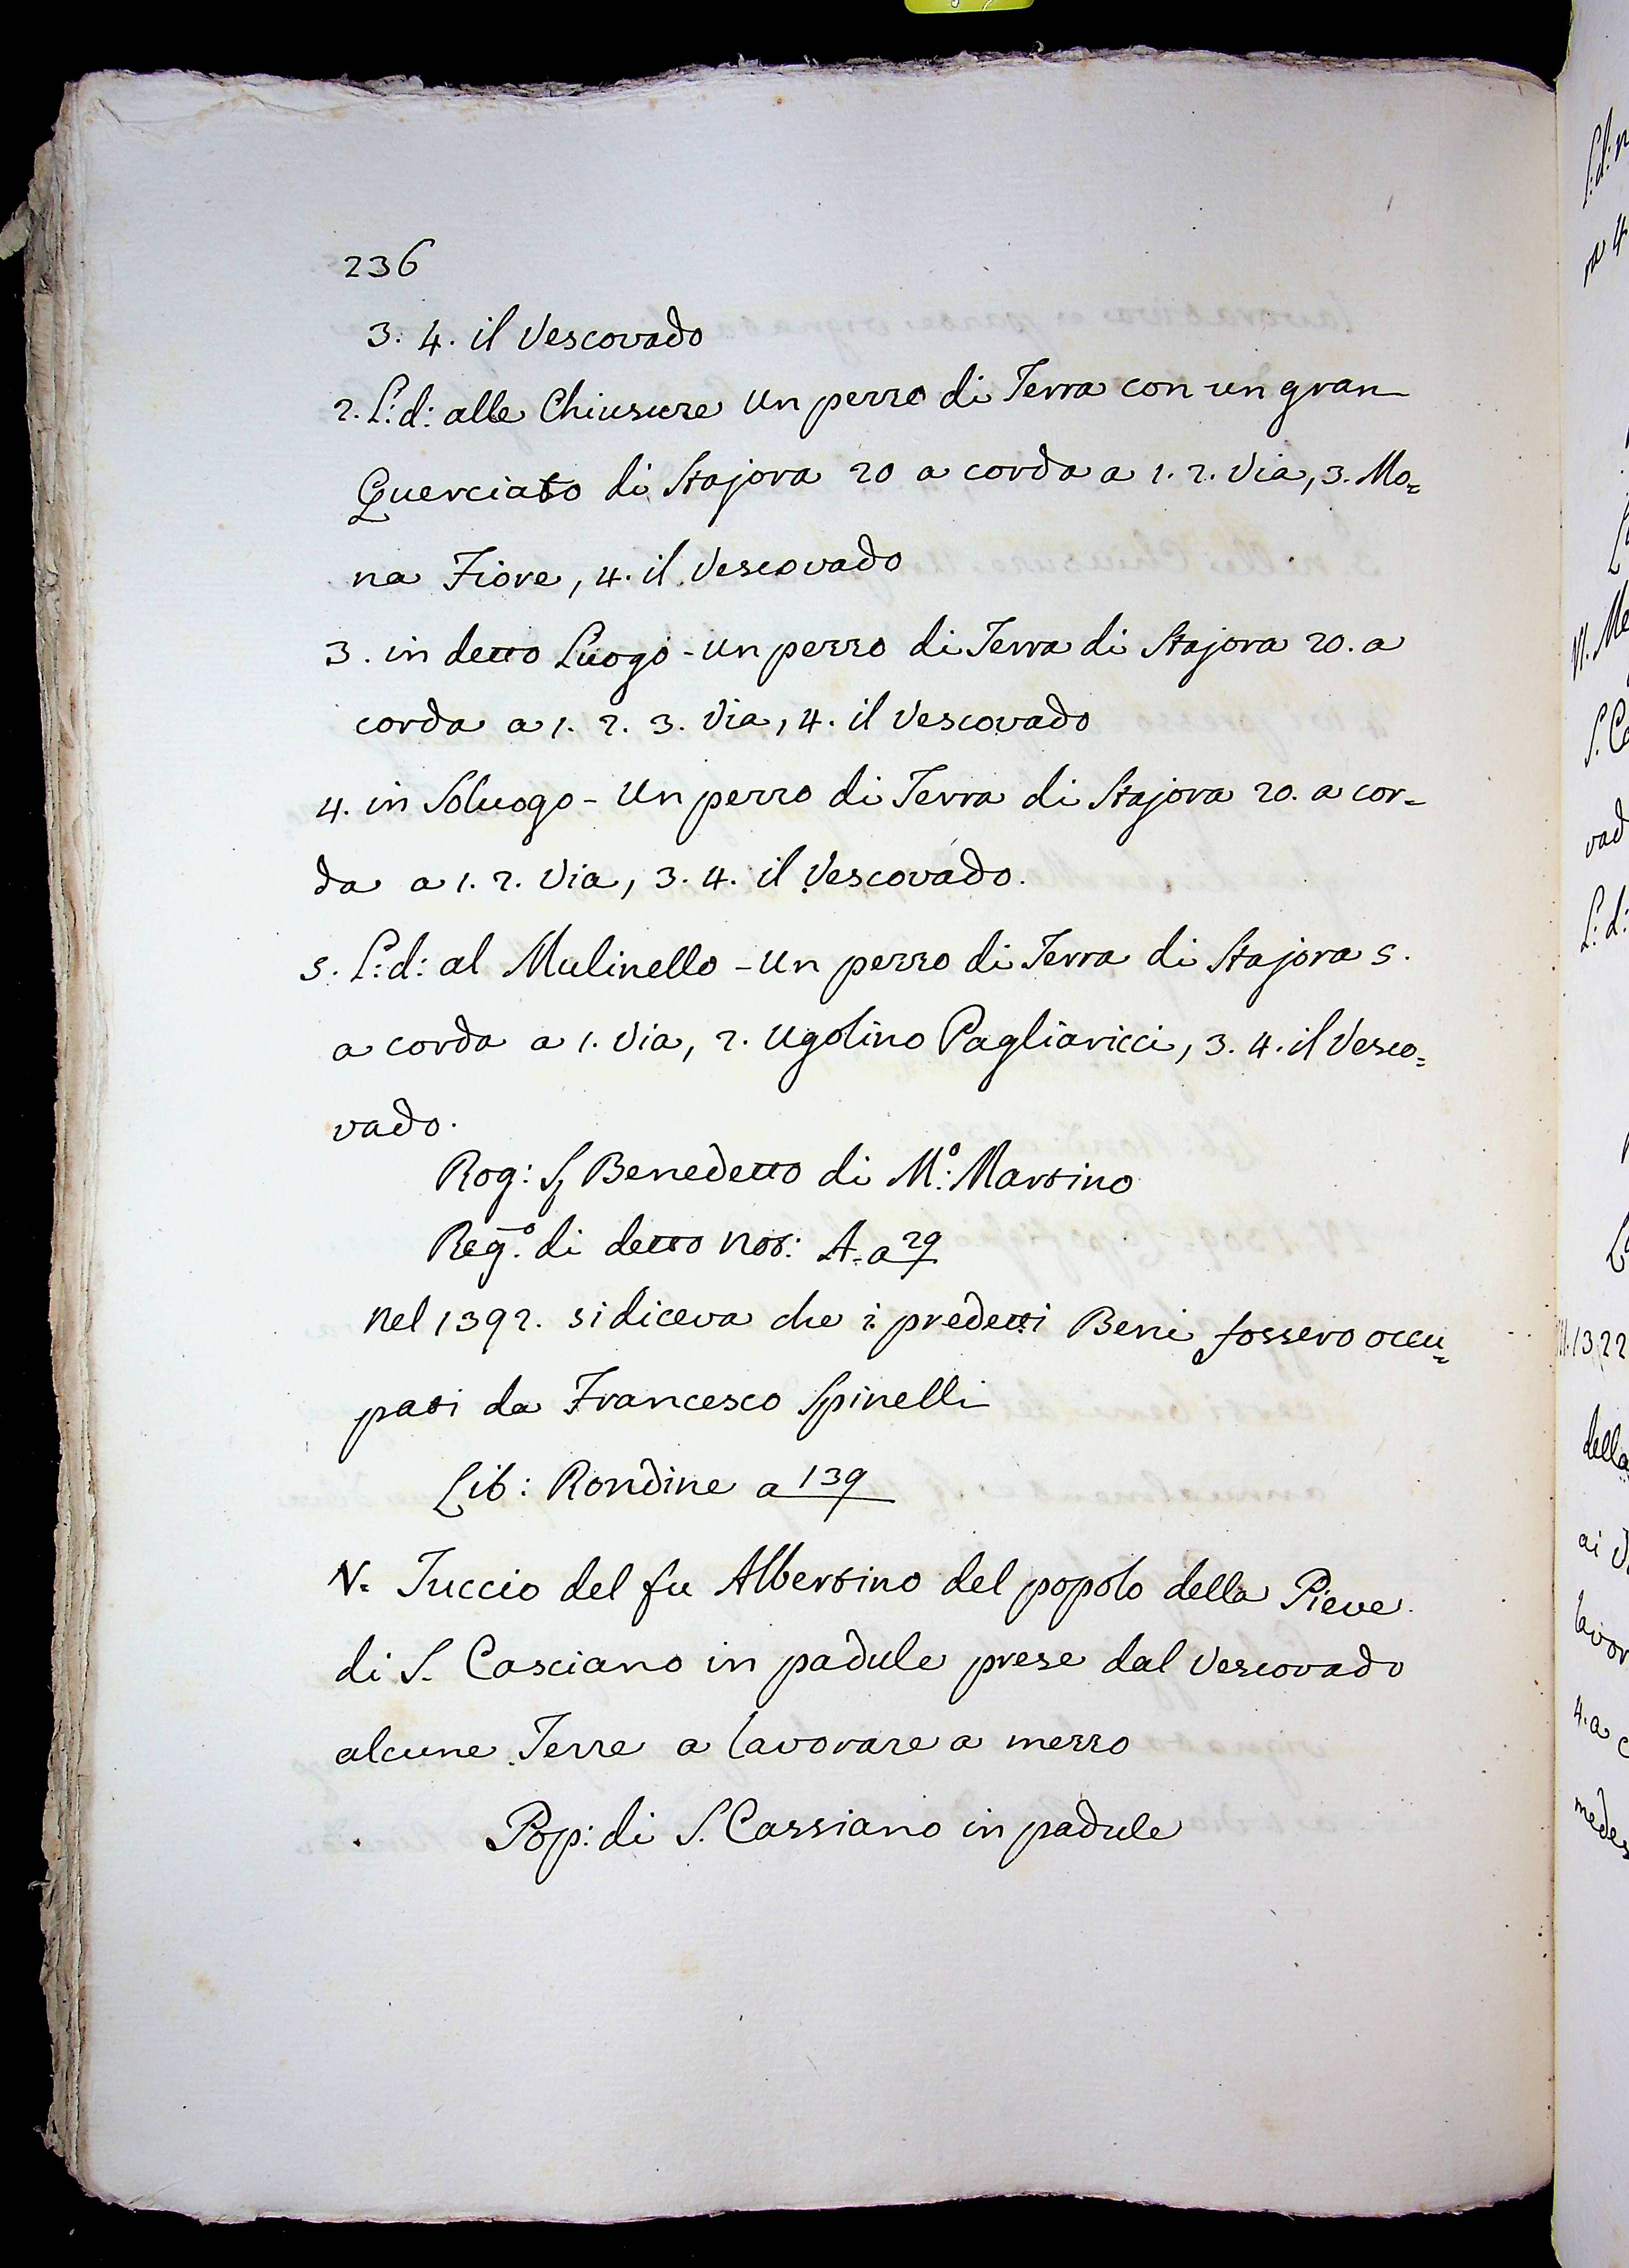 236
3. 4. il Vescovado
2. L: d: alle Chiusure un pezzo di Terra con un gran
Querciato di Stajora 20 a corda a 1. 2. Via, 3. Mo=
na Fiore, 4. il Vescovado
3. in detto Luogo - un pezzo di Terra di Stajora 20. a
corda a 1. 2. 3. Via, 4. il Vescovado
4. in Soluogo - Un pezzo di Terra di Stajora 20. a cor=
da a 1. 2. Via, 3. 4. il Vescovado.
5. L: d: al Mulinello - un pezzo di Terra di Stajora 5.
a corda a 1. Via, 2. Ugolino Pagliaricci, 3. 4. il Vesco=
vado.
Rog: S. Benedetto di M.º: Martino
Reg.º di detto Not: A. a 29
nel 1392. si diceva che i predetti Beni fossero occu=
pati da Francesco Spinelli
Lib: Rondine a 139
N. Tuccio del fu Albertino del popolo della Pieve
di S. Casciano in padule prese dal Vescovado
alcune Terre a lavorare a mezzo
Pop: di S. Cassiano in padule